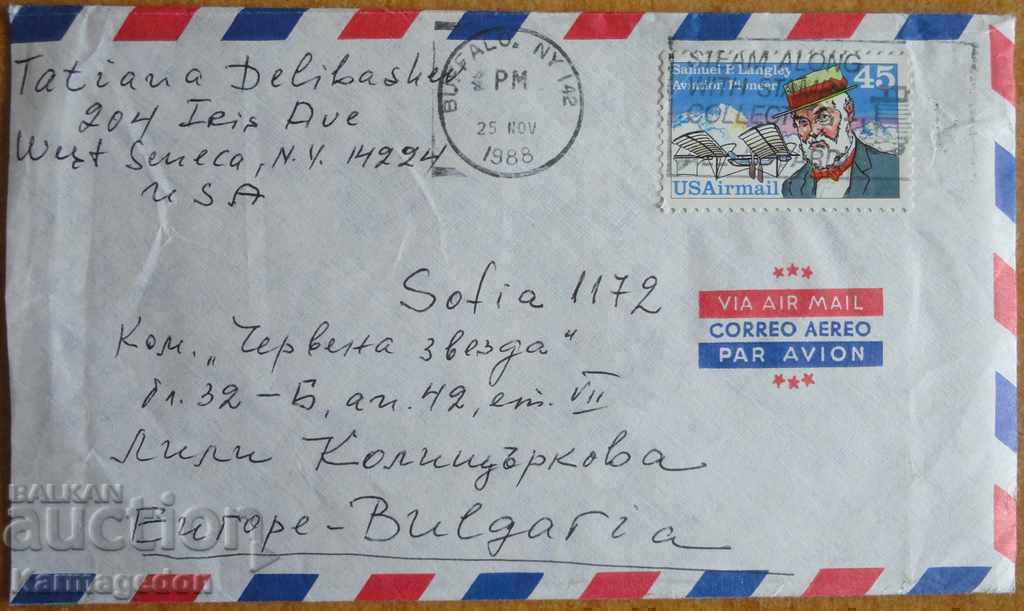 Tatiana Delibasheva
204 Iris Ave
West Seneca, N.Y. 14224
USA
BUFFALO, NY 142
PM
25 NOV
1988
STEAM ALONG
COLLECT
Samuel P. Langley
Aviation Pioneer
45
USAirmail
VIA AIR MAIL
CORREO AEREO
PAR AVION
Sofia 1172
Ком. „Червена звезда“
бл. 32 – Б, ап. 42, ет. VII
Лили Колищъркова
Europe - Bulgaria
BALKAN
auction
Karmagedon